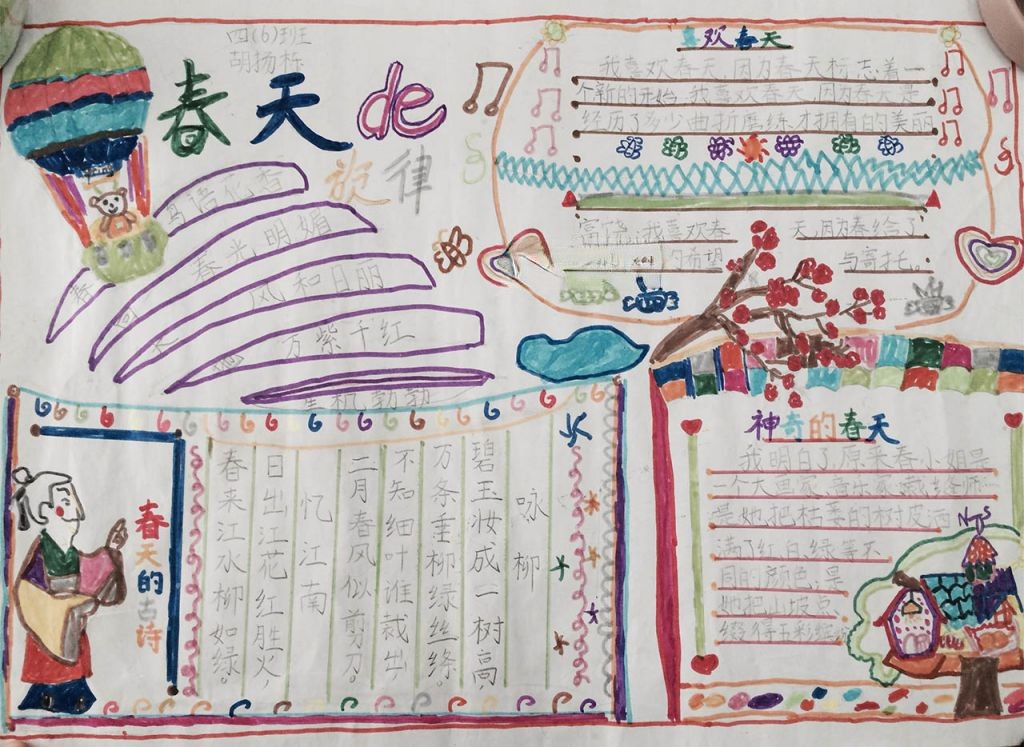 四(6)班
胡扬栎
春天de
旋律
鸟语花香
春光明媚
风和日丽
万紫千红
生机勃勃
喜欢春天
我喜欢春天,因为春天标志着一
个新的开始,我喜欢春天,因为春天是
经历了多少曲折磨练,才拥有的美丽
我喜欢春天,因为春给了
希望与寄托。
春天的古诗
咏柳
碧玉妆成一树高,
万条垂柳绿丝绦。
不知细叶谁裁出,
二月春风似剪刀。
忆江南
日出江花红胜火,
春来江水柳如绿。
神奇的春天
我明白了原来春小姐是
一个大画家、音乐家、裁缝师
是她把枯萎的树皮洒
满了红、白、绿等不
同的颜色,是
她把山坡点
缀得五彩缤
N S